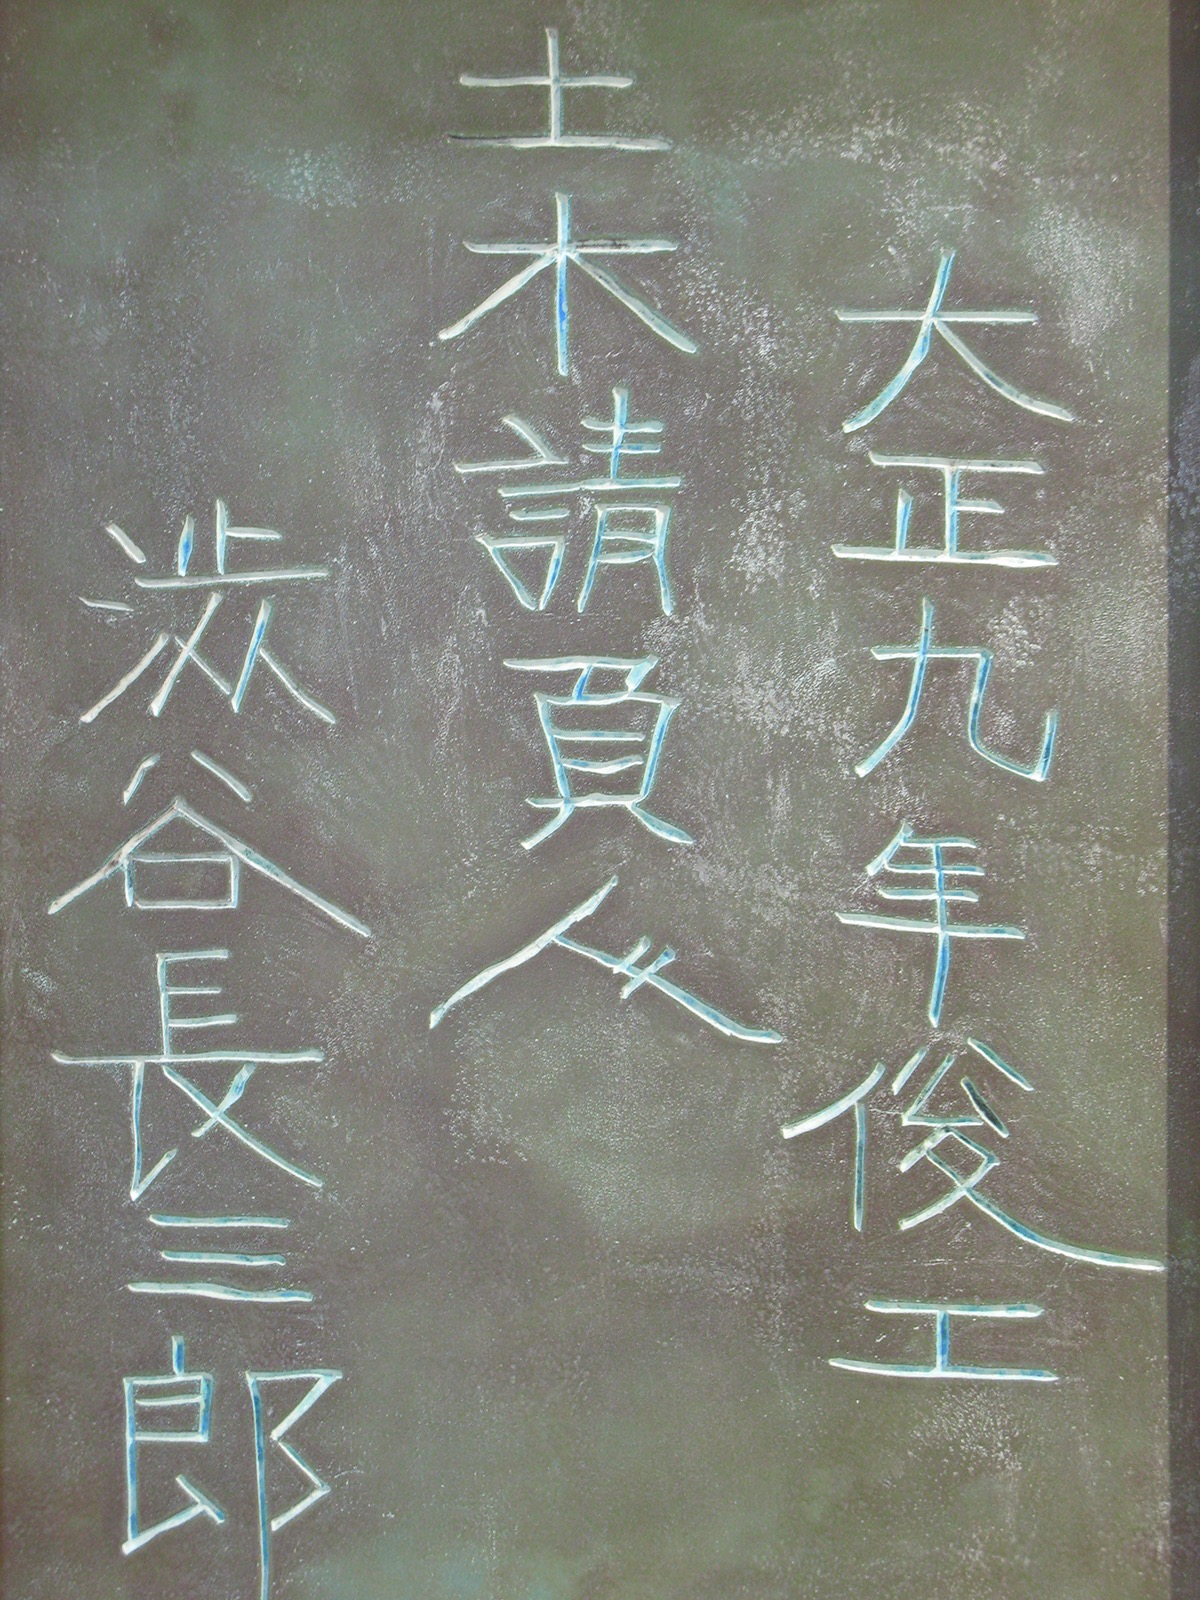 大正九年俊工
土木請負人
渋谷長三郎